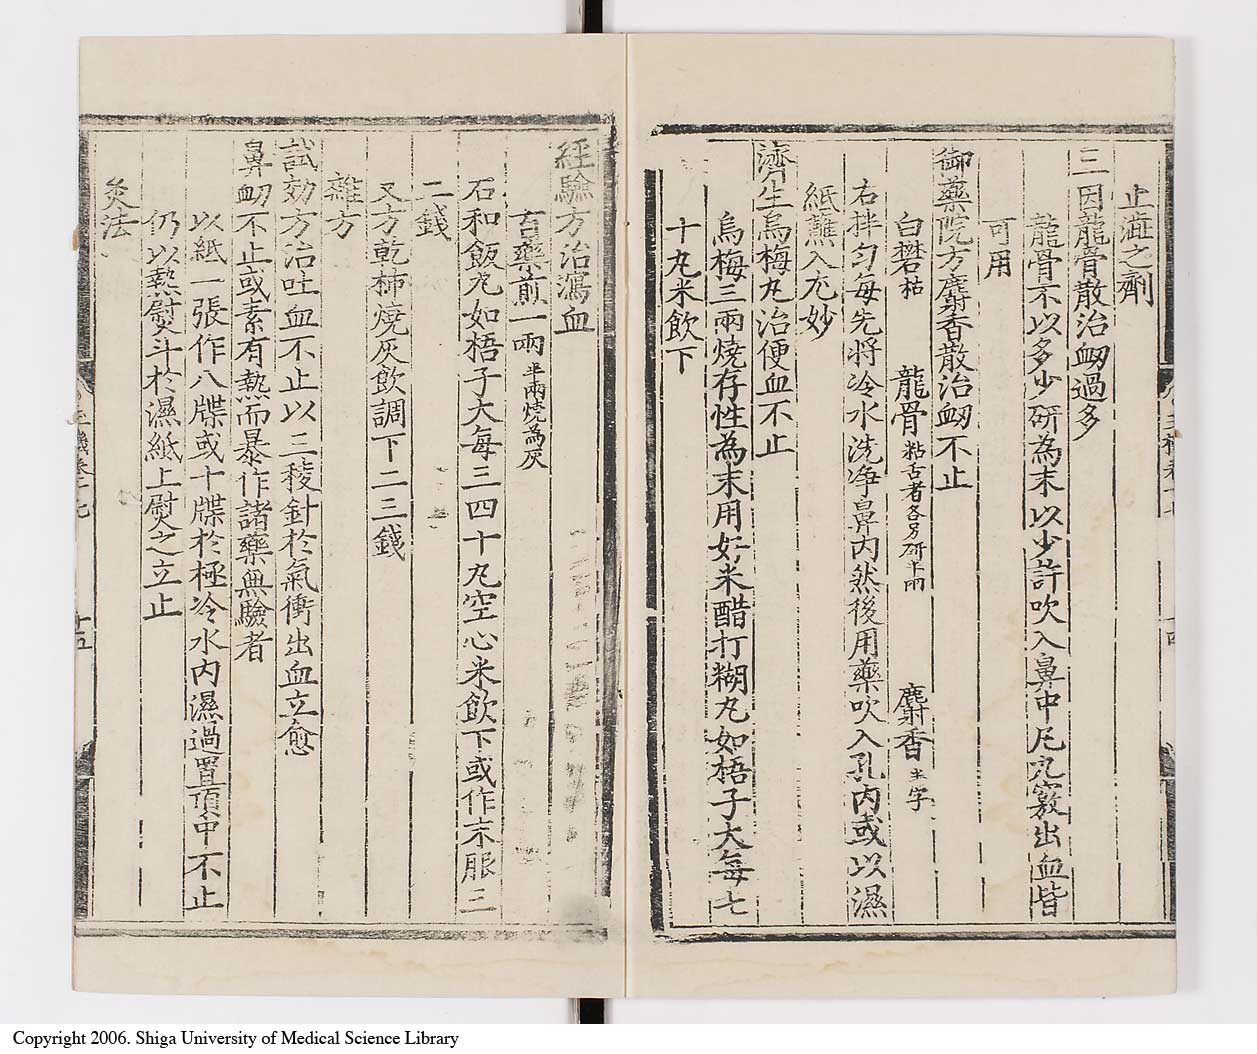 止澁之劑
三因龍骨散治衂過多
龍骨不以多少研為末以少許吹入鼻中凡九竅出血皆
可用
御藥院方麝香散治衂不止
白礬枯 龍骨粘舌者各另研半兩 麝香半字
右拌匀每先將冷水洗净鼻内然後用藥吹入孔内或以濕
紙蘸入尤妙
濟生烏梅丸治便血不止
烏梅三兩燒存性為末用好米醋打糊丸如梧子大每七
十丸米飲下
經驗方治瀉血
百藥煎一兩半兩燒為灰
右和飯丸如梧子大每三四十丸空心米飲下或作末服三
二錢
又方乾柿燒灰飲調下二三錢
雜方
試効方治吐血不止以三稜針於氣衝出血立愈
鼻衂不止或素有熱而暴作諸藥無驗者
以紙一張作八牒或十牒於極冷水内濕過置頂中不止
仍以熱熨斗於濕紙上熨之立止
灸法
十五
Copyright 2006. Shiga University of Medical Science Library